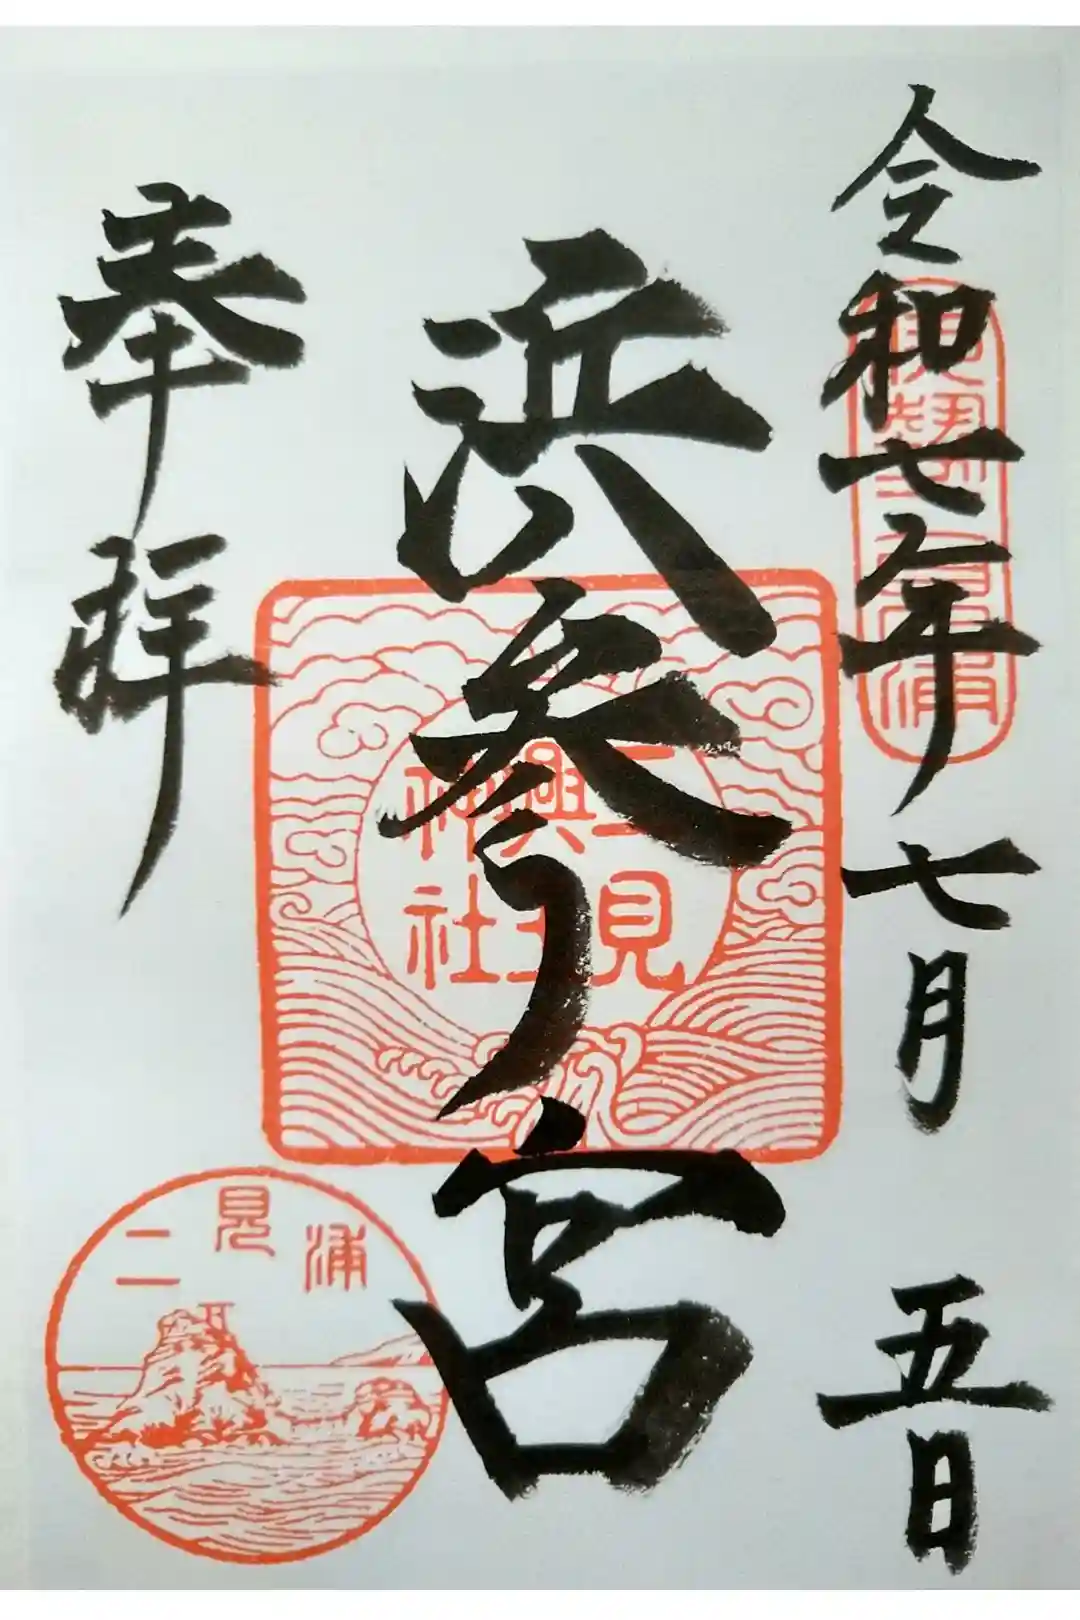 令和七年七月五日
伊勢二見浦
浜参宮
二見興玉神社
奉拝
二見浦